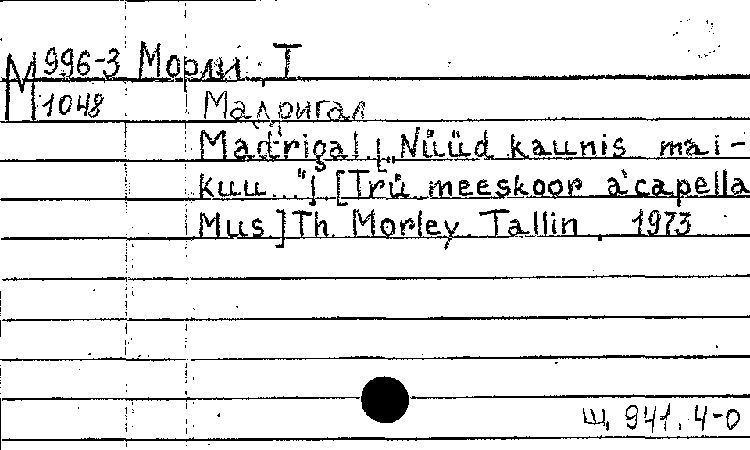 М 996-3 Морли, Т
1048 Мадригал
Madrigal [„Nüüd kaunis mai-
kuu..."] [Trü meeskoor a'capella
Mus] Th. Morley. Tallin, 1973
щ 941.4-0